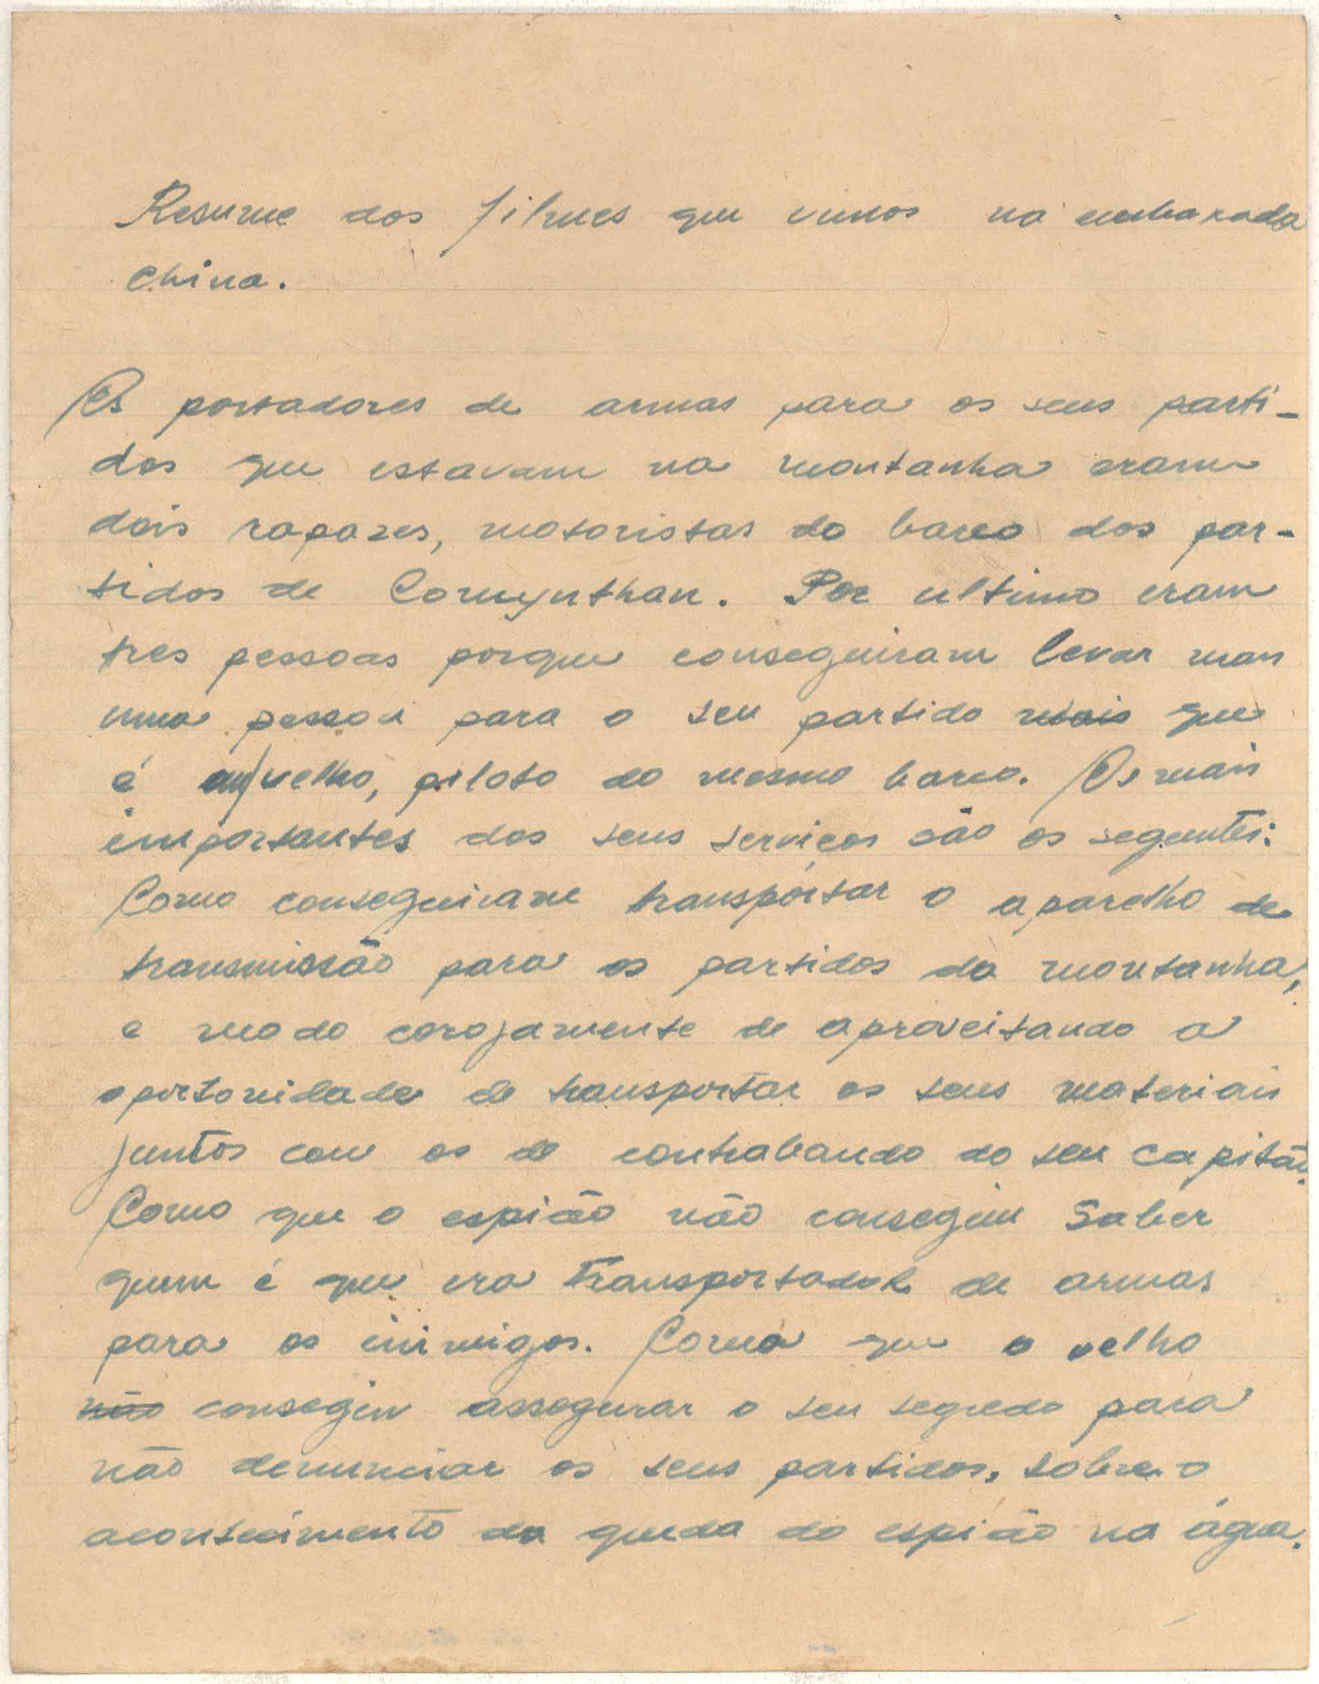 Resume dos filmes que vimos na embaxada
China.
Os portadores de armas para os seus parti-
dos que estavam na montanha eram
dois rapazes, motoristas do barco dos par-
tidos de Comynthan. Por ultimo eram
tres pessoas porque conseguiram levar mais
uma pessoa para o seu partido mais que
é um velho, piloto do mesmo barco. Os mais
importantes dos seus serviços são os seguintes:
Como conseguiram transportar o aparelho de
transmissão para os partidos da montanha,
e modo corojamente de aproveitando a
oportonidade de transportar os seus materiais
juntos com os de contrabando do seu capitão.
Como que o espião não consegiu saber
quem é que era transportador de armas
para os inimigos. Como que o velho
não consegiu assegurar o seu segredo para
não denunciar os seus partidos, sobre o
acontecimento da queda do espião na água.